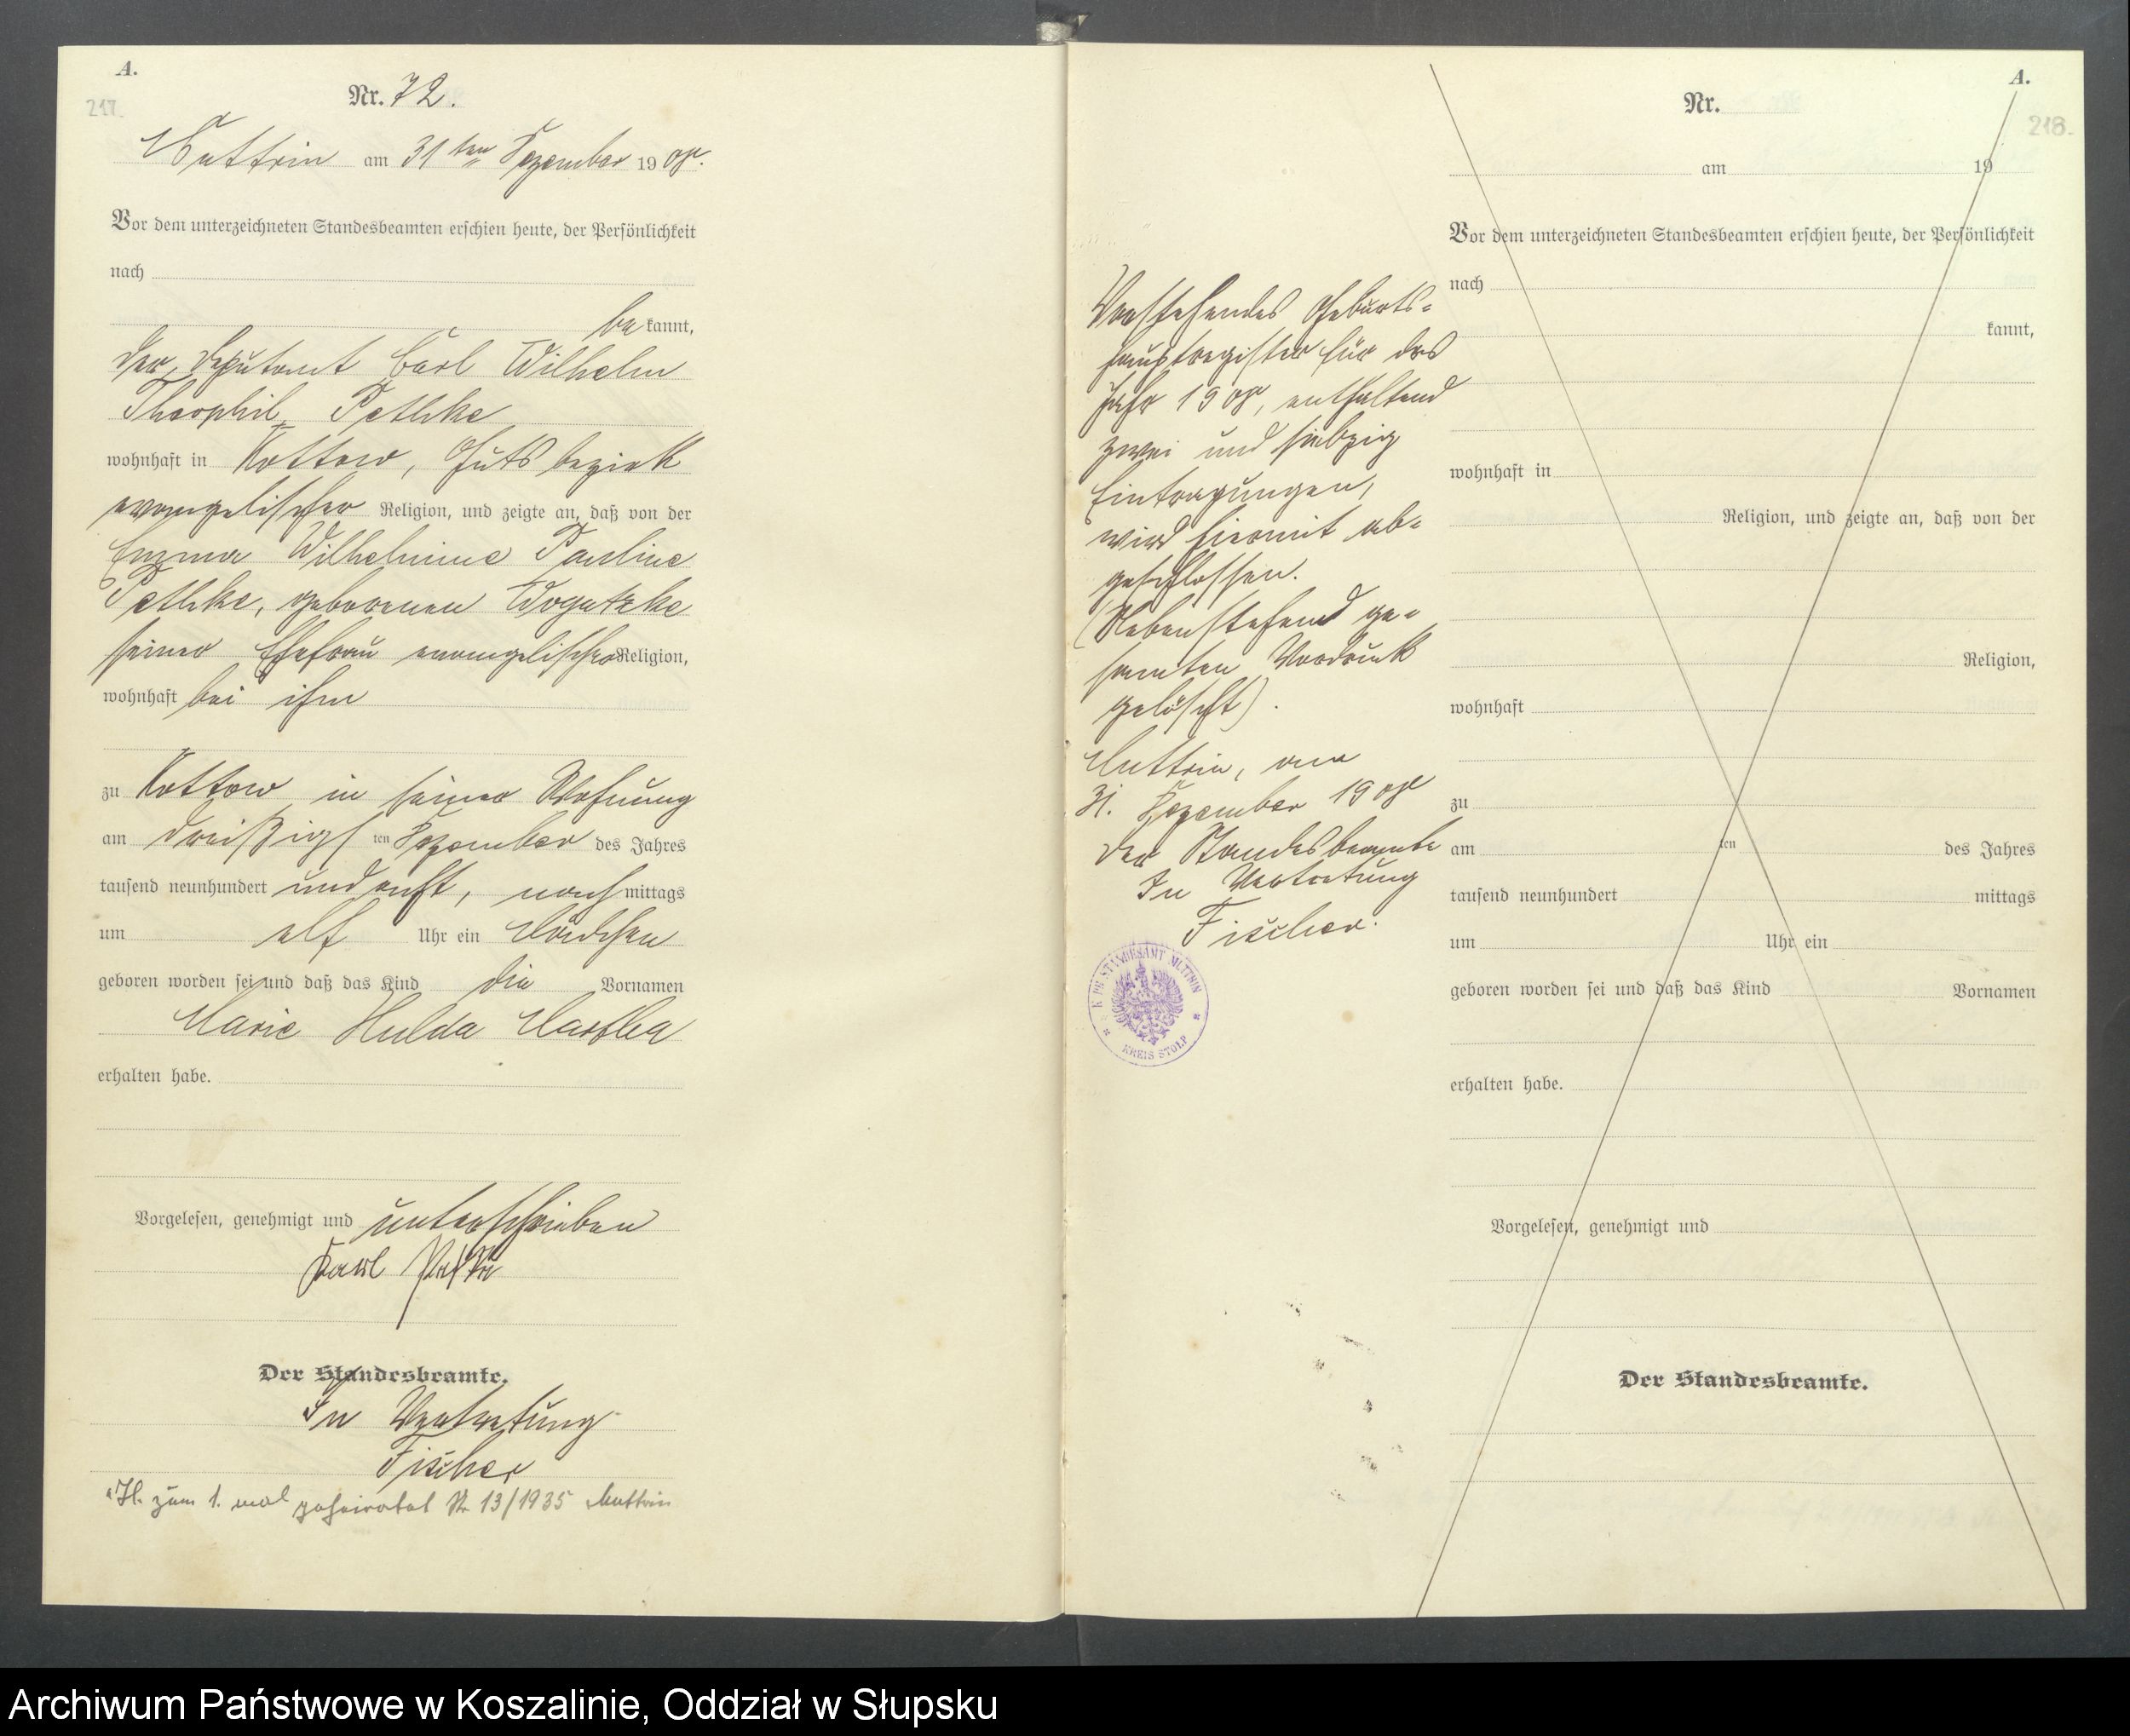 A.
217.
Nr. 72.
Muttrin am 31ten Dezember 1908.
Vor dem unterzeichneten Standesbeamten erschien heute, der Persönlichkeit
nach
bekannt,
der Deputant Carl Wilhelm
Theophil Pethke
wohnhaft in Kottow, Gutsbezirk
evangelischer Religion, und zeigte an, daß von der
Emma Wilhelmine Pauline
Pethke, geborenen Wogatzke
seiner Ehefrau evangelischer Religion,
wohnhaft bei ihm
zu Kottow in seiner Wohnung
am dreißigsten Dezember des Jahres
tausend neunhundert und acht, nachmittags
um elf Uhr ein Mädchen
geboren worden sei und daß das Kind die Vornamen
Marie Hulda Martha
erhalten habe.
Vorgelesen, genehmigt und unterschrieben
Karl
Der Standesbeamte.
In Vertretung
Fischer
zum 1. mal geheiratet Nr 13/1935 Muttrin
Vorstehendes Geburts=
hauptregister für das
Jahr 1908, enthaltend
zwei und siebzig
Eintragungen,
wird hiermit ab=
geschlossen.
(Nebenstehend ge=
samten Vordruck
gelöscht).
Muttrin, am
31. Dezember 1908
Der Standesbeamte
In Vertretung
Fischer.
STANDESAMT MUTTRIN
KREIS STOLP
A.
218.
Nr.
am 19
Vor dem unterzeichneten Standesbeamten erschien heute, der Persönlichkeit
nach
kannt,
wohnhaft in
Religion, und zeigte an, daß von der
Religion,
wohnhaft
zu
am ten des Jahres
tausend neunhundert mittags
um Uhr ein
geboren worden sei und daß das Kind Vornamen
erhalten habe.
Vorgelesen, genehmigt und
Der Standesbeamte.
Archiwum Państwowe w Koszalinie, Oddział w Słupsku